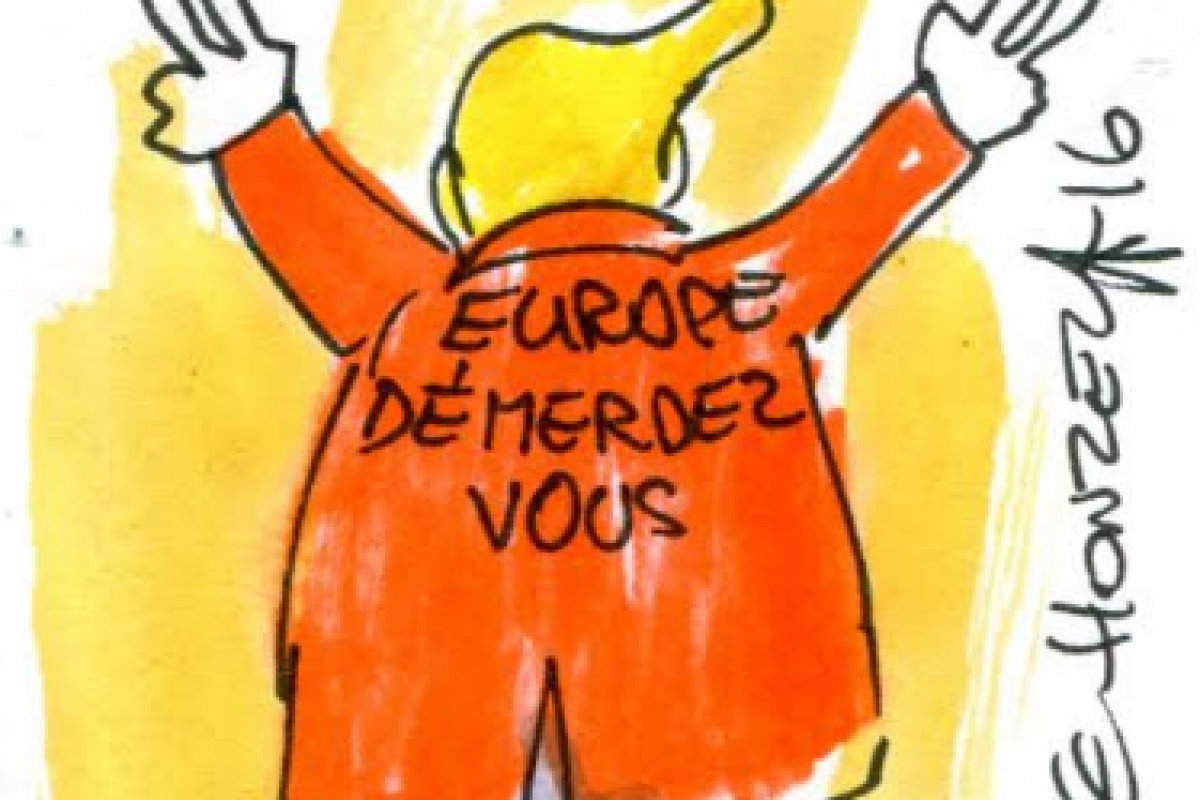 EUROPE
DÉMERDEZ
VOUS
E HONZEZ 16